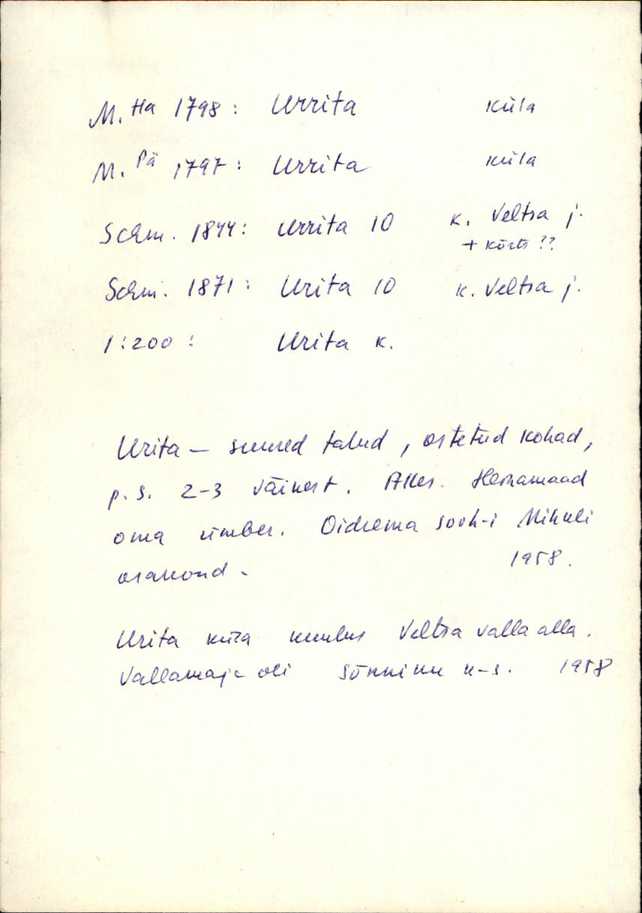 M. Ha 1798: Urrita küla
M. Pä 1797: Urrita küla
Schm. 1844: Urrita 10 k. Veltsa j.
+ kõrts ??
Schm. 1871: Urita 10 k. Veltsa j.
1:200: Urita k.
Urita — suured talud, ostetud kohad,
p. s. 2-3 väikest. Heinamaad
oma ümber. Oidrema sovh-i Mihkli
osakond. 1958.
Urita küla kuulus Veltsa valla alla.
Vallamaja oli k-s. 1958